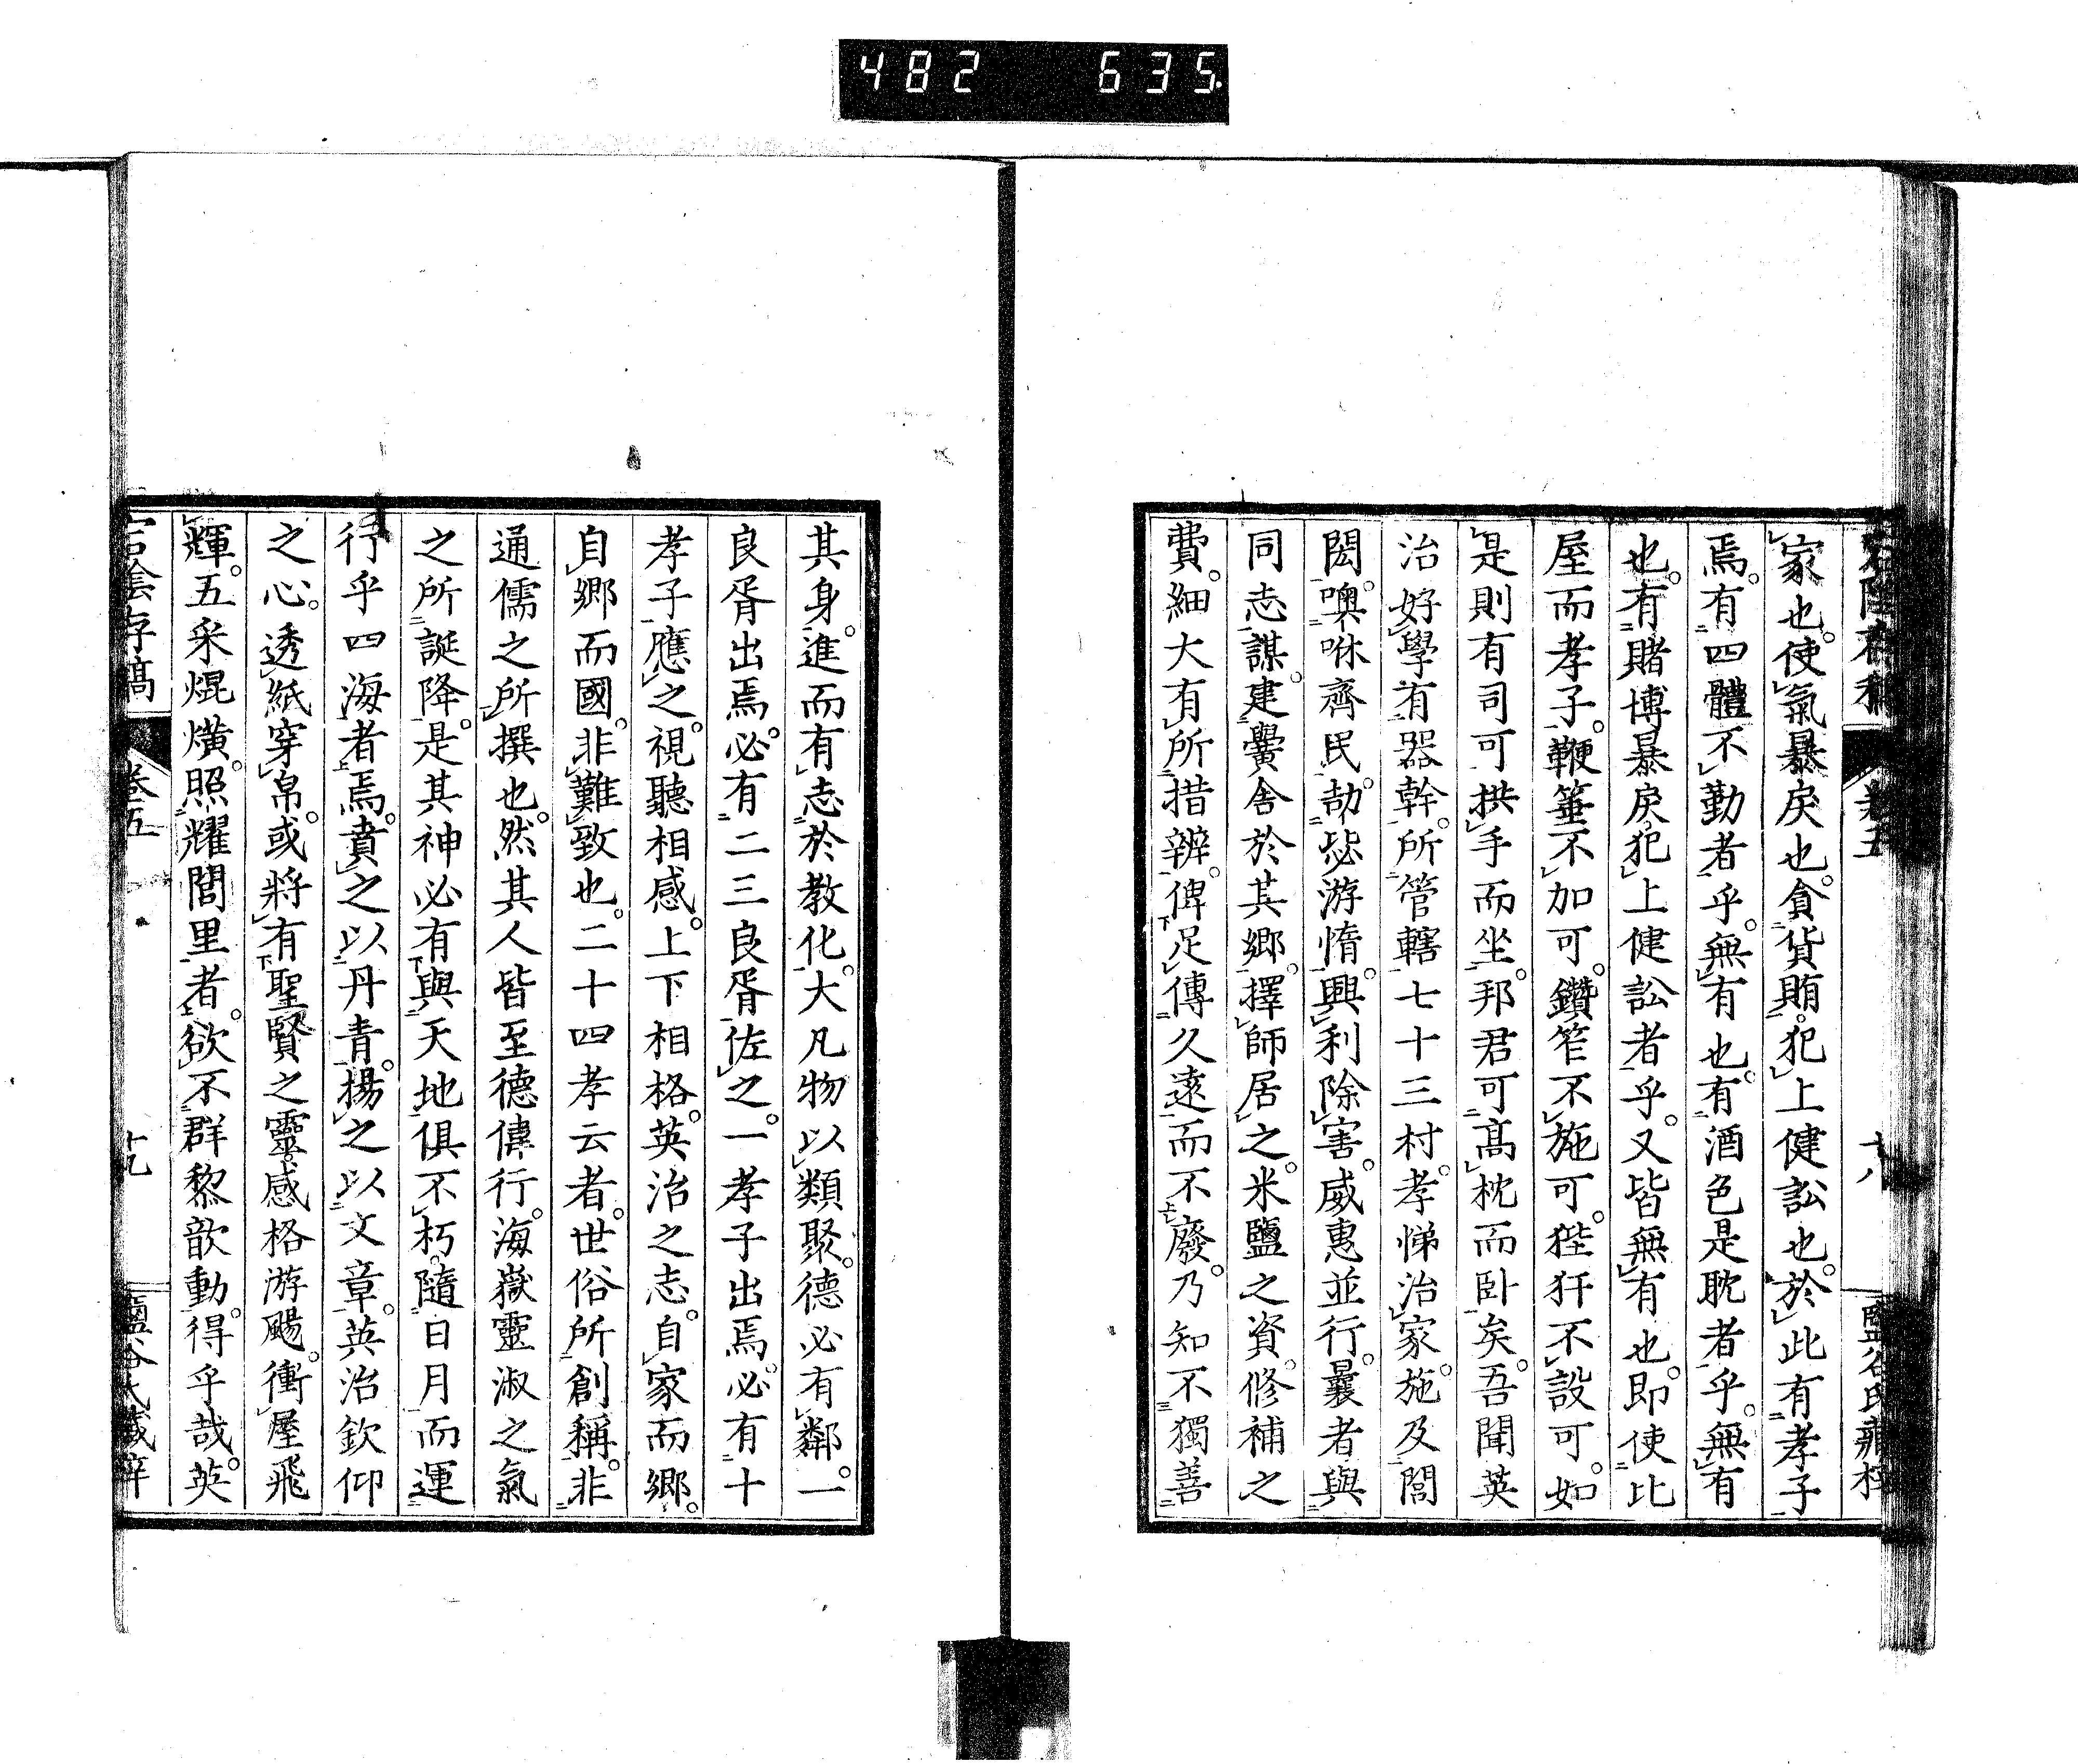 482 635
家也。使氣暴戾也。貪貨賄。犯上健訟也。於此有孝子
焉。有四體不勤者乎。無有也。有酒色是耽者乎。無有
也。有賭博暴戾。犯上健訟者乎。又皆無有也。即使比
屋而孝子。鞭箠不加可。鑽笮不施可。狴犴不設可。如
是則有司可拱手而坐。邦君可高枕而卧矣。吾聞英
治好學有器幹。所管轄七十三村。孝悌治家。施及閭
閻。噢咻齊民。劼毖游惰。興利除害。威惠並行。曩者與
同志謀。建黌舍於其鄉。擇師居之。米鹽之資。修補之
費。細大有所措辨。俾足傳久遠而不廢。乃知不獨善
卷五
其身。進而有志於教化。大凡物以類聚。德必有鄰。一
良胥出焉。必有二三良胥佐之。一孝子出焉。必有十
孝子應之。視聽相感。上下相格。英治之志。自家而鄉。
自鄉而國。非難致也。二十四孝云者。世俗所創稱。非
通儒之所撰也。然其人皆至德偉行。海嶽靈淑之氣
之所誕降。是其神必有與天地俱不朽。隨日月而運
行乎四海者焉。賁之以丹青。揚之以文章。英治欽仰
之心。透紙穿帛。或將有聖賢之靈。感格游颺。衝屋飛
輝。五采焜燿。照耀閭里者。欲不群黎歆動。得乎哉。英
卷五 十九